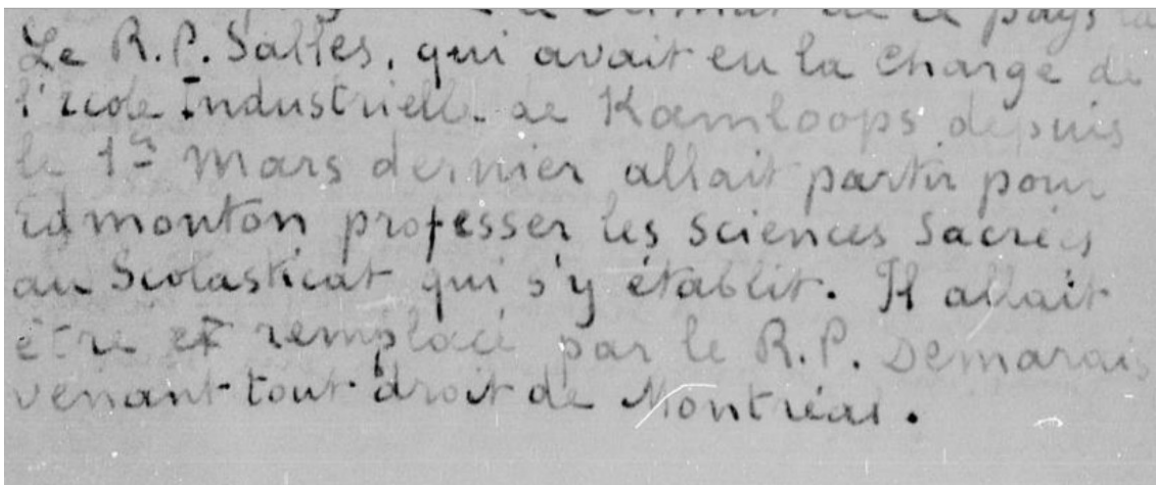 climat de ce pays là
Le R.P. Salles, qui avait eu la Charge de
l'ecole Industrielle de Kamloops depuis
le 1er Mars dernier allait partir pour
Edmonton professer les Sciences Sacrées
au Scolasticat qui s'y établit. Il allait
être et remplacé par le R.P. Demarais
venant tout droit de Montréal.